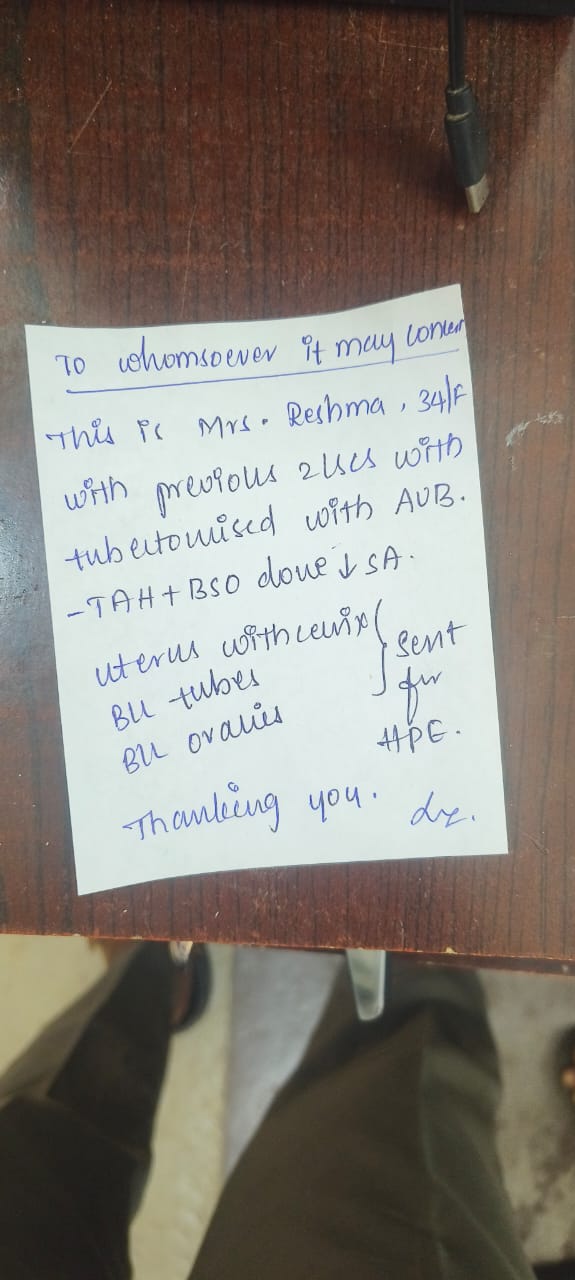 To whomsoever it may concern
This is Mrs. Reshma, 34/F
with previous 2 LSCS with
tubectomised with AUB.
- TAH + BSO done ↓ SA.
uterus with cervix } Sent
B/L tubes for
B/L ovaries HPE.
Thanking you.